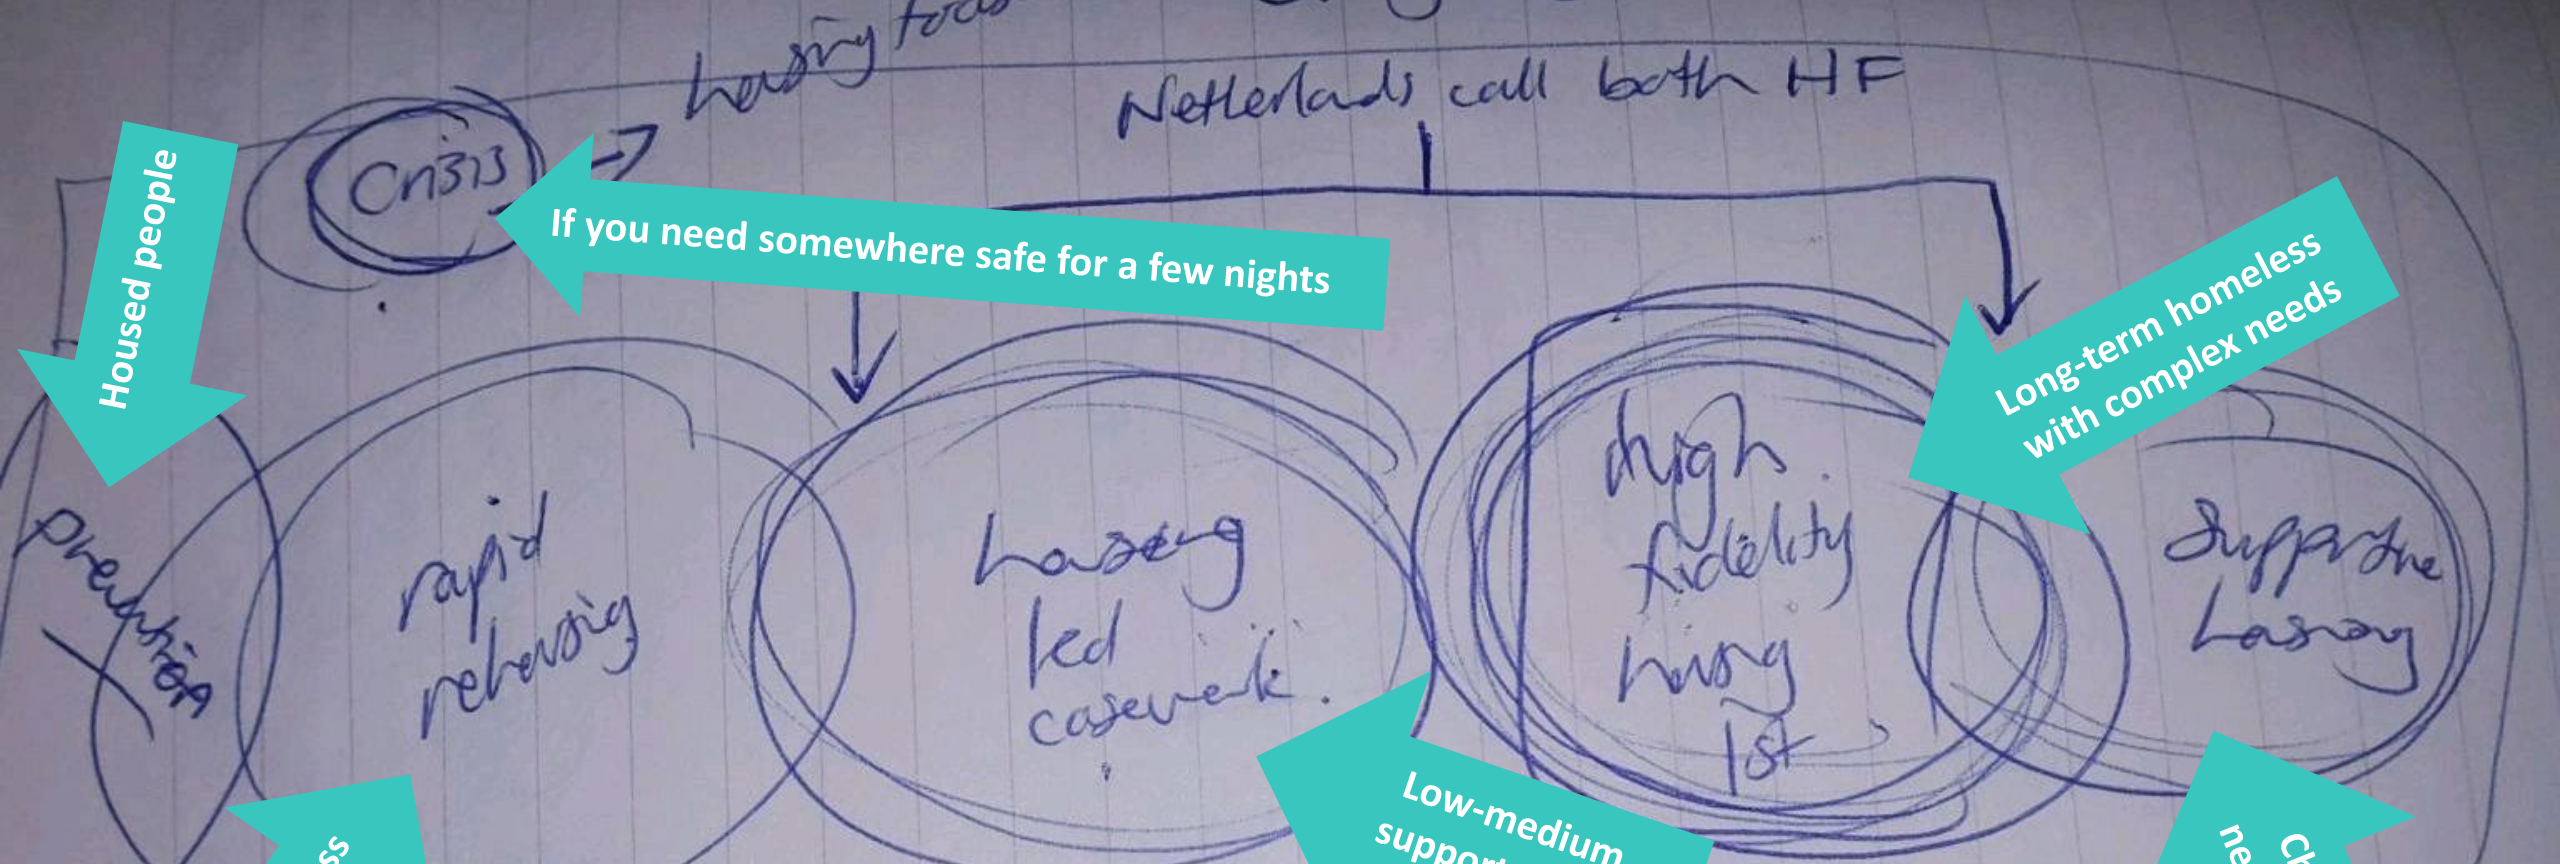 housing
Netherlands call both HF
Crisis
Housed people
If you need somewhere safe for a few nights
Long-term homeless
with complex needs
prevention
rapid
rehousing
housing
led
casework.
high
fidelity
housing
1st
supportive
housing
Low-medium
support
ss
Ch
ne